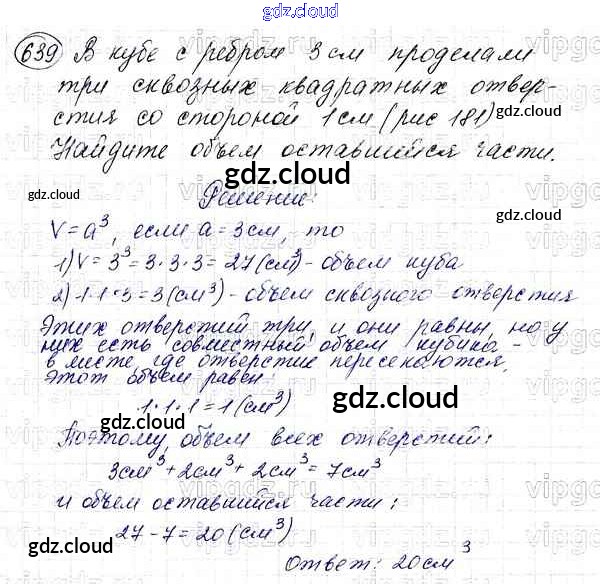 gdz.cloud
639 В кубе с ребром 3 см проделали
три сквозных квадратных отвер-
стия со стороной 1 см (рис 181)
gdz.cloud
Найдите объем оставшейся части.
gdz.cloud
gdz.cloud
gdz.cloud
Решение:
V = a³, если a = 3 см, то
1) V = 3³ = 3·3·3 = 27 (см³) - объем куба
2) 1·1·3 = 3 (см³) - объем сквозного отверстия
Этих отверстий три, и они равны, но у
них есть совместный объем кубика -
в месте, где отверстие пересекаются.
Этот объем равен:
1·1·1 = 1 (см³)
gdz.cloud
gdz.cloud
Поэтому, объем всех отверстий:
3 см³ + 2 см³ + 2 см³ = 7 см³
и объем оставшийся части:
gdz.cloud
27 - 7 = 20 (см³)
gdz.cloud
gdz.cloud
Ответ: 20 см³